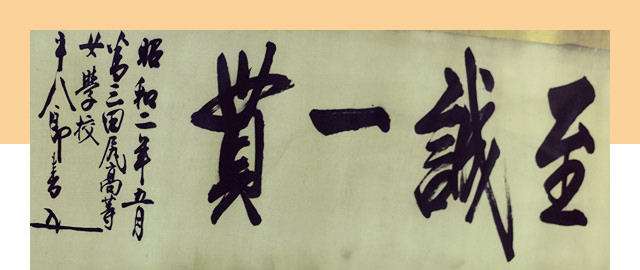 至誠一貫
昭和二年五月
為三田尻高等
女學校
平八郎書